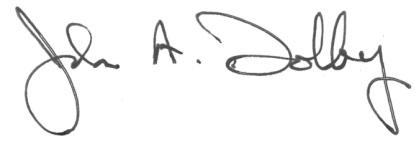 John A. Dolby